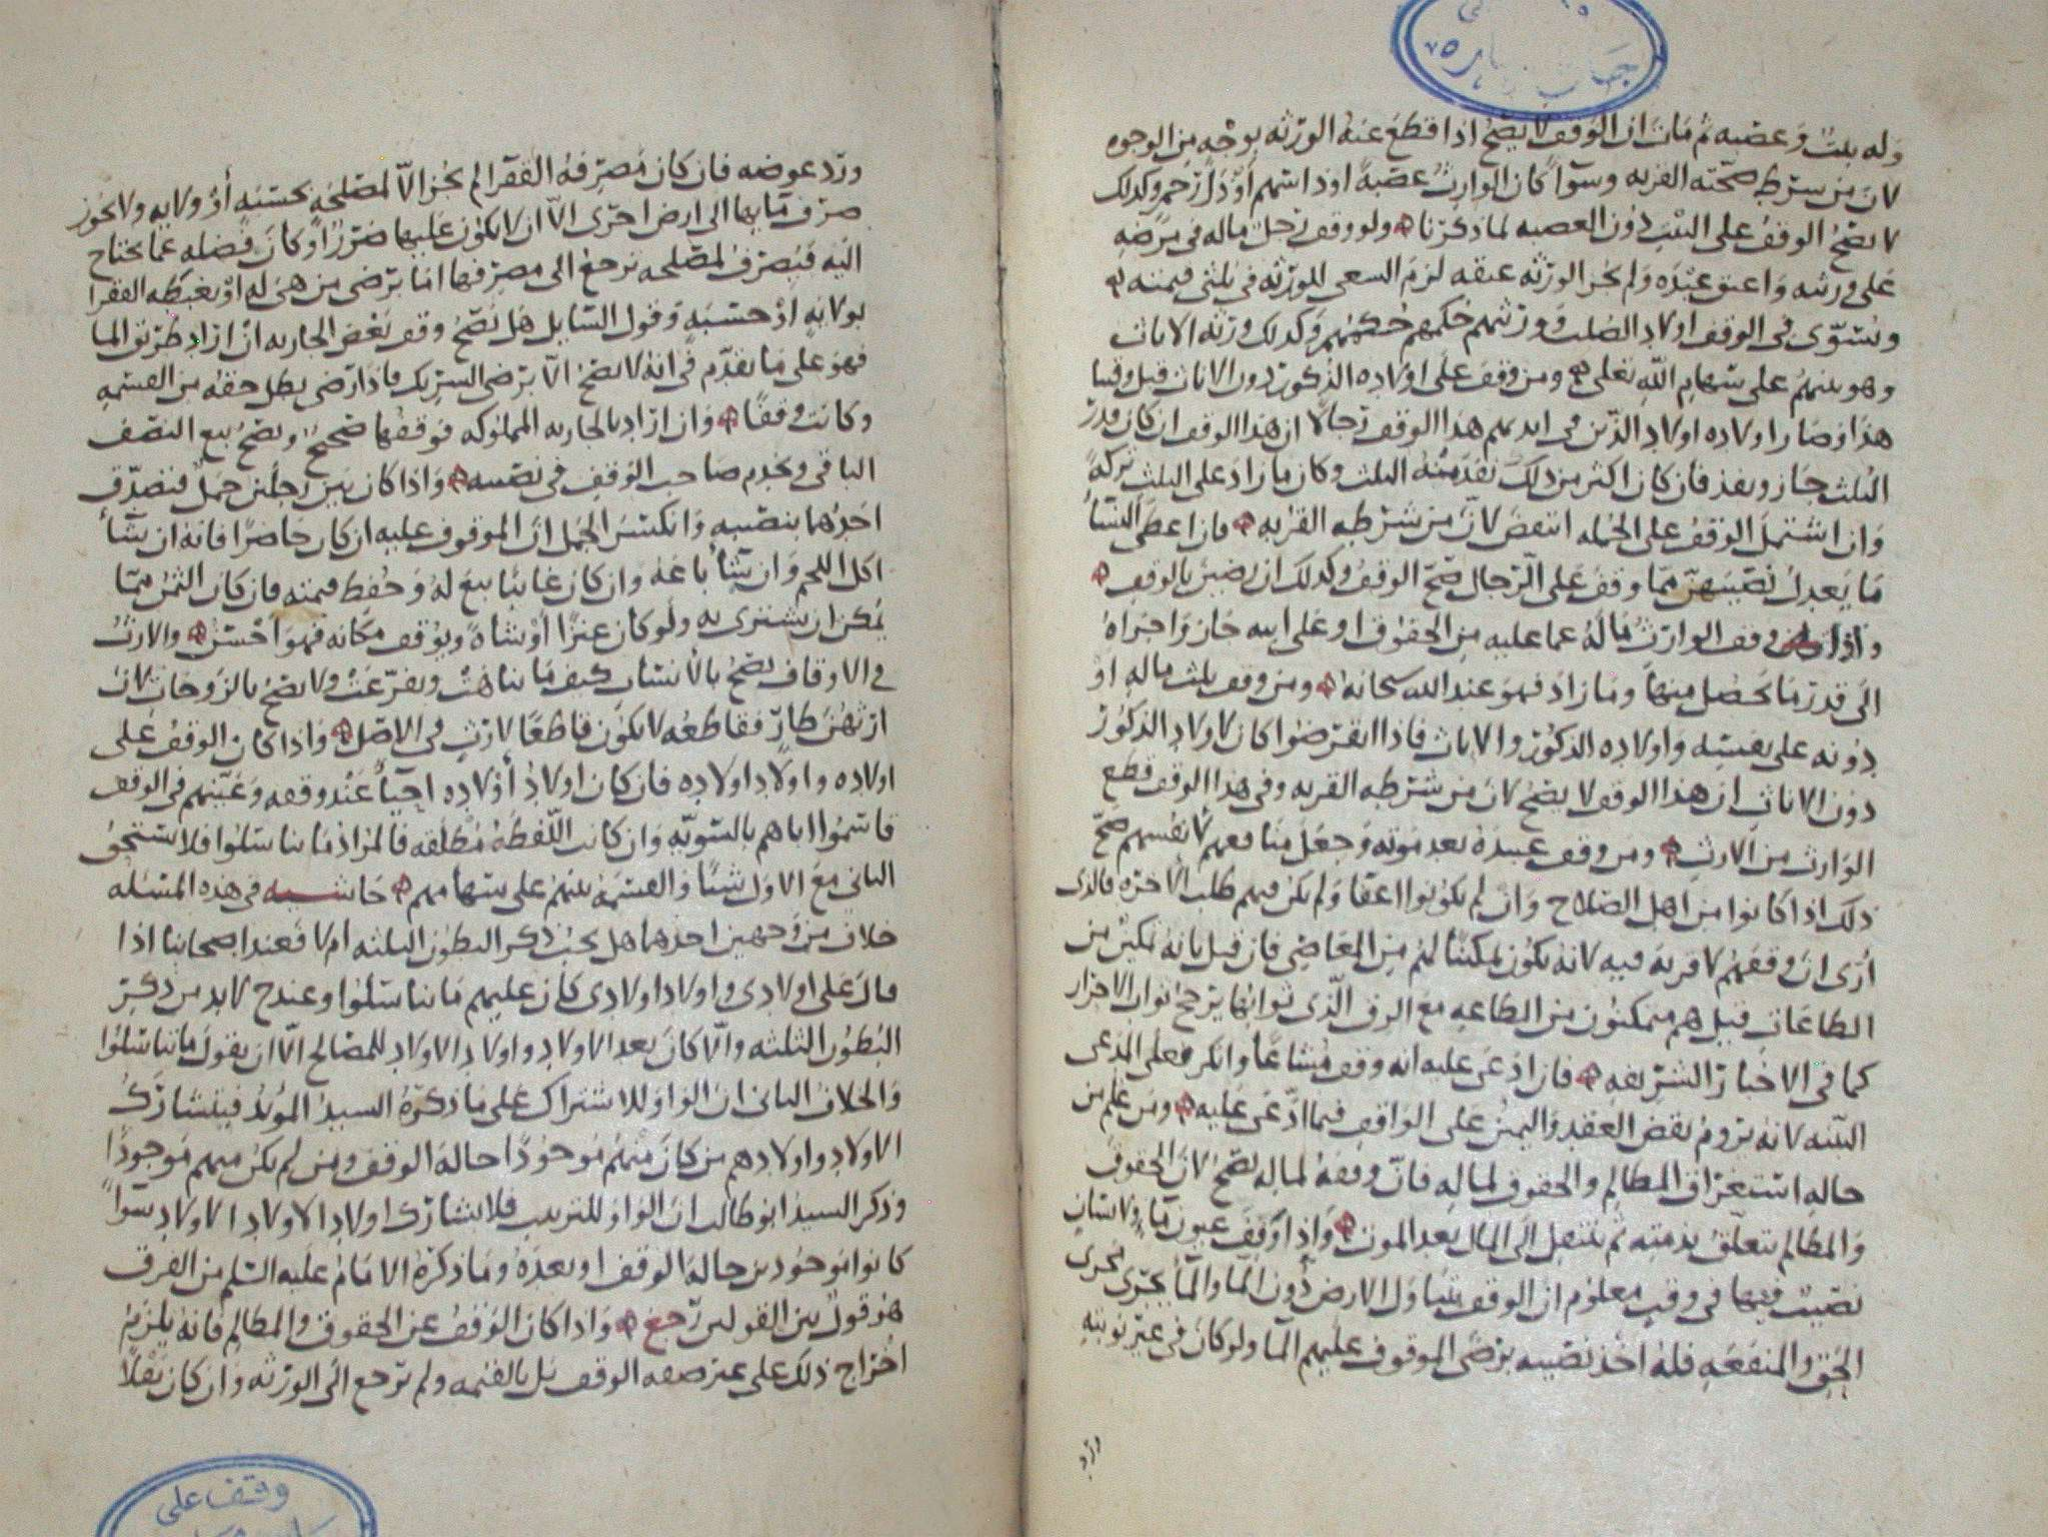 وله بنت وعصبه ثم مات ان الوقف لا يصح اذا قطع عنه الورثه بوجه من الوجوه
لان من شرط صحته القربه وسوآ كان الوارث عصبة او ذا سهم او ذا رحم وكذلك
لا يصح الوقف على البنت دون العصبه لما ذكرنا ولو وقف رجل ماله في مرضه
على ورثته واعتق عبده ولم يجز الورثه عتقه لزم السعي للورثه في ثلثي قيمته
ويستوي في الوقف اولاد الصلب وورثتهم حكمهم حكمهم وكذلك ورثه الاناث
وهو بينهم على سهام الله تعلى ومن وقف على اولاده الذكور دون الاناث قبل وقتنا
هذا وصار اولاده اولاد الذين في ايديهم هذا الوقف رجالا ان هذا الوقف ان كان قدر
الثلث جاز ونفذ فان كان اكثر من ذلك نفذ منه الثلث وكان ما زاد على الثلث تركة
وان اشتمل الوقف على الجمله انتقض لان من شرطه القربه فان اعطى النسأ
ما يعدل نصيبهن مما وقف على الرجال صح الوقف وكذلك ان رضين بالوقف
واذا وقف الوارث ماله عما عليه من الحقوق او على ابيه جاز واجزاه
الى قدر ما يحصل منها وما زاد فهو عند الله سبحانه ومن وقف ثلث ماله او
دونه على نفسه واولاده الذكور والاناث فاذا انقرضوا كان لاولاد الذكور
دون الاناث ان هذا الوقف لا يصح لان من شرطه القربه وفي هذا الوقف قطع
الوارث من الارث ومن وقف عبيده بعد موته وجعل منافعهم لانفسهم صح
ذلك اذا كانوا من اهل الصلاح وان لم يكونوا اعفا ولم يكن فيهم طلب الاخره فالذي
ارى ان وقفهم لا قربة فيه لانه يكون تمكينا لهم من المعاصي فان قيل بانه تمكين من
الطاعات قيل هم متمكنون من الطاعه مع الرق الذي ثوابها يرجح ثواب الاحرار
كما في الاخبار الشريفه فان ادعى عليه انه وقف مشاعا وانكر فعلى المدعى
البينه لانه يروم نقض العقد واليمين على الواقف فيما ادعى عليه ومن علم من
حاله استغراق المظالم والحقوق لماله فان وقفه لماله يصح لان الحقوق
والمظالم تتعلق بذمته ثم تنتقل الى المال بعد الموت واذا وقف عيون مآ ولانسان
نصيب فيها في وقت معلوم ان الوقف يتناول الارض دون المآ والمآ يجرى مجرى
الحق والمنفعه فله اخذ نصيبه برضى الموقوف عليهم المآ ولو كان في غير نوبته
ورد
ورد عوضه فان كان مصرفه الفقرا لم يجز الا لمصلحه بحسبه او ولايه ولا يجوز
صرف مآيها الى ارض اخرى الا ان لا يكون عليها ضرر او كان فضله عما يحتاج
اليه فيصرف لمصلحه ترجع الى مصرفها اما برضى من هي له او بغبطه الفقرا
بولايه او حسبه وقول السايل هل يصح وقف بعض الجاريه ان اراد طريق الما
فهو على ما تقدم في انه لا يصح الا برضى الشريك فاذا رضي بطل حقه من القسمه
وكانت وقفا وان اراد بالجاريه المملوكه فوقفها صحيح ويصح بيع النصف
الباقي وتخدم صاحب الوقف في نصيبه واذا كان بين رجلين جمل فتصدق
احدهما بنصيبه وانكسر الجمل ان الموقوف عليه ان كان حاضرا فانه ان شأ
اكل اللحم وان شأ باعه وان كان غايبا بيع له وحفظ قيمته فان كان الثمن مما
يمكن ان يشترى به ولو كان عنزا او شاة ويوقف مكانه فهو احسن والارث
في الاوقاف يصح بالانساب كيف ما تناهت وتفرعت ولا يصح بالزوجات لان
ارثهن طار فقاطعه لا يكون قاطعا لارث في الاصل واذا كان الوقف على
اولاده واولاد اولاده فان كان اولاد اولاده احيآ عند وقفه وعينهم في الوقف
قاسموا اباهم بالسويه وان كانت اللفظه مطلقه فالمراد ما تناسلوا فلا يستحق
الثاني مع الاول شيا والقسمه بينهم على سهامهم حاشيه في هذه المسئله
خلاف من وجهين احدهما هل يجب ذكر البطون الثلثه ام لا فعند اصحابنا اذا
قال على اولادي واولاد اولادي كان عليهم ما تناسلوا وعند ح لابد من ذكر
البطون الثلثه والا كان بعد الاولاد واولاد الاولاد للمصالح الا ان يقول ما تناسلوا
والخلاف الثاني ان الواو للاشتراك على ما ذكره السيد المؤيد فيتشارك
الاولاد واولادهم من كان منهم موجودا حالة الوقف ومن لم يكن منهم موجودا
وذكر السيد ابو طالب ان الواو للترتيب فلا يتشارك اولاد الاولاد الاولاد سوآ
كانوا موجودين حالة الوقف او بعده وما ذكره الامام عليه السلم من الفرق
هو قول بين القولين رجع واذا كان الوقف عن الحقوق والمظالم فانه يلزم
اخراج ذلك على غير صفه الوقف بل بالقيمه ولم ترجع الى الورثه وان كان نفلا
وقف على